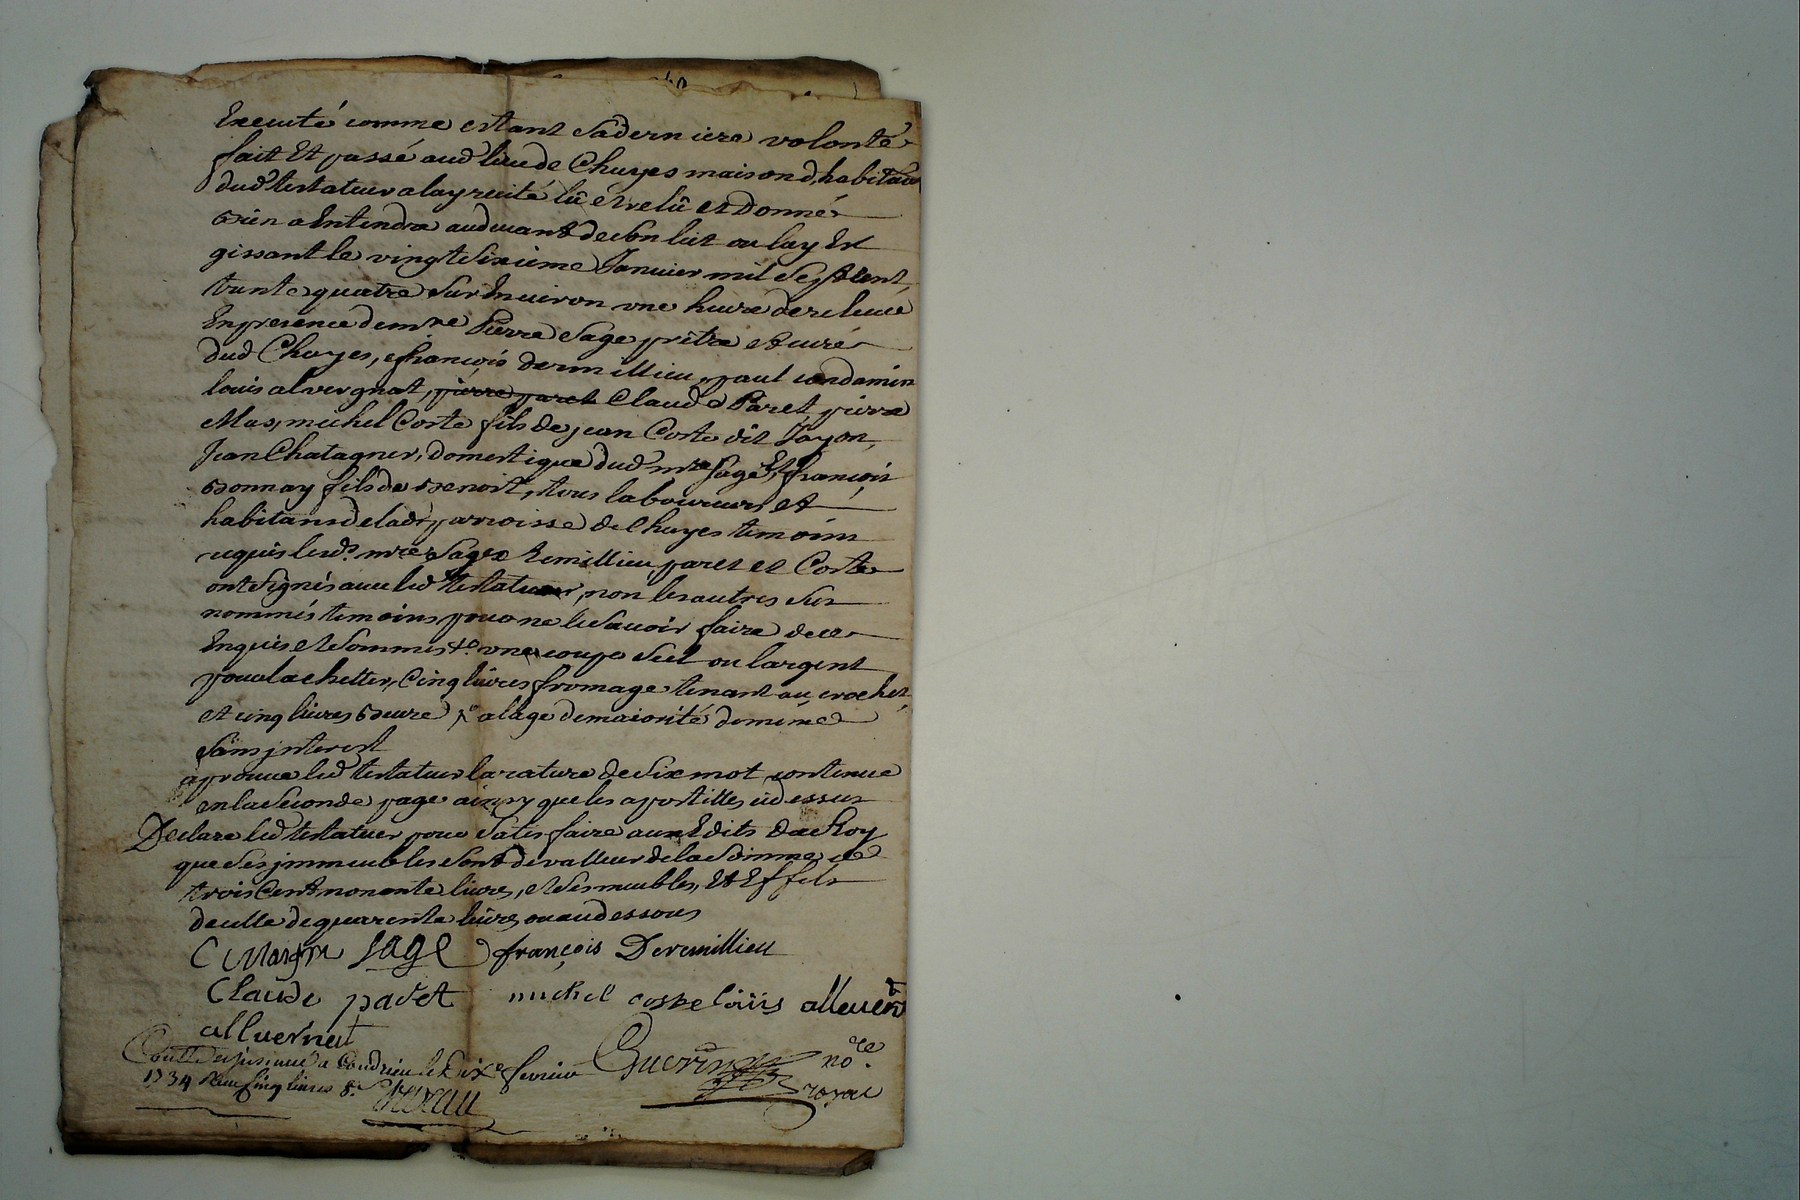 Executé comme estant sa derniere volonté
fait Et passé aud lieu de Chuyes maison d'habitaõn
dud testateur a luy recité lû et relû et Donné
Bien a Entendre audeuant de son lict ou luy Est
gissant le vingt Sixieme Januier mil Sept Cent
trante quatre Sur Enuiron vne heure de releuée
En presence de mre Pierre Sage prêtre et curé
dud Chuyes, françois deremillieu, paul condamin
louis alvergnat, pierre paret Claude Paret, pierre
Mas, michel Corte fils de jean Corte dit Jayon,
Jean Chatagner, domestique dud mre Sage, Et françois
Bonnay fils de Benoist, tous laboureurs et
habitans de lade parroisse de Chuyes temoins
requis lesds mres Sage Remillieu, paret et Corte
ont Signés auec led testateur, non les autres Sus
nommés temoins pour ne le Sauoir faire de ce
Enquis et Sommés vne coupe Seel ou largent
pour lachetter, Cinq liures fromage tenant au crochet,
et cinq liures Beurre a lage de maiorité de mème
Sans jnterest
aprouue led testateur la rature de Six mot contenue
en la Seconde page ainsy que les apostilles cidessus
Declare led testateur pour Satisfaire aux Edits du Roy
que Ses jmmeubles Sont de valleur de la Somme de
trois Cent nonante liures, et Ses meubles, Et Effets
de celle de quarente liures ou au dessous
Sage françois Deremillieu
Claude paret michel coste loüis alleuer
alluernat
Conttrollé a Condrieu le Dixe feurier Guerin no.re
1734 Receu Cinq liures royal